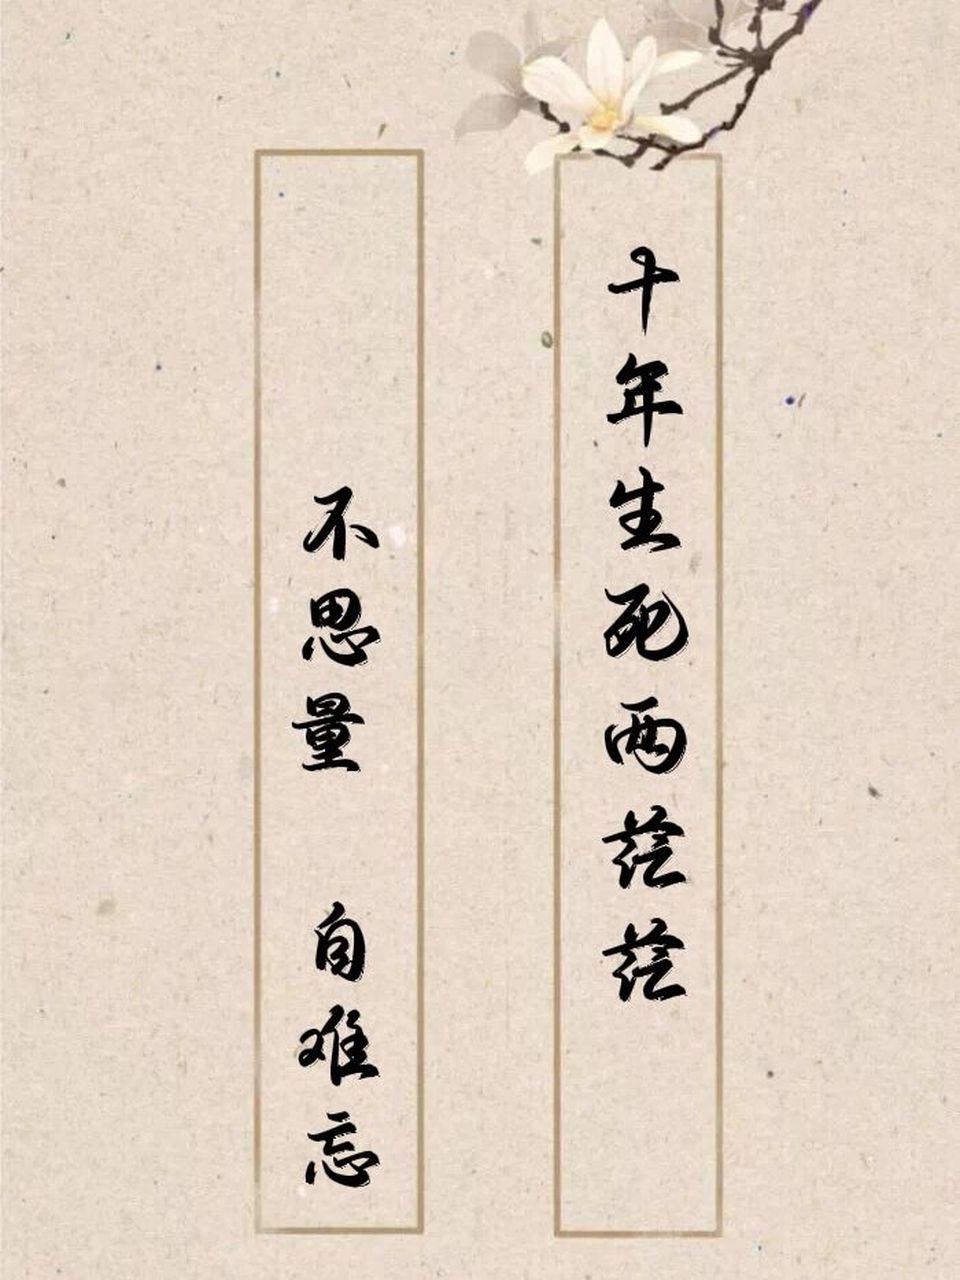 十年生死两茫茫
不思量 自难忘